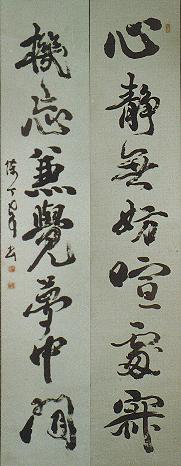 心静無妨喧處寂
機忘兼覺夢中閒